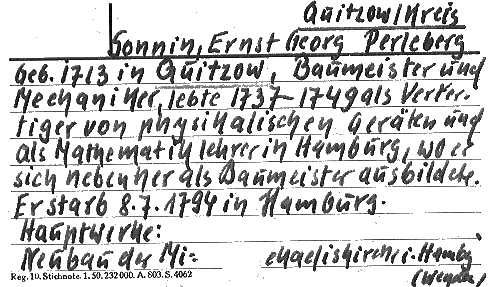 Quitzow/Kreis
Sonnin, Ernst Georg Perleberg
Geb. 1713 in Quitzow, Baumeister und
Mechaniker, lebte 1737-1749 als Verfer-
tiger von physikalischen Geräten und
als Mathematiklehrer in Hamburg, wo er
sich nebenher als Baumeister ausbildete.
Er starb 8.7.1794 in Hamburg.
Hauptwerke:
Neubau der Mi= chaeliskirche i. Hambg
Reg. 10. Stichnote. 1. 50. 232000. A. 803. S. 4062